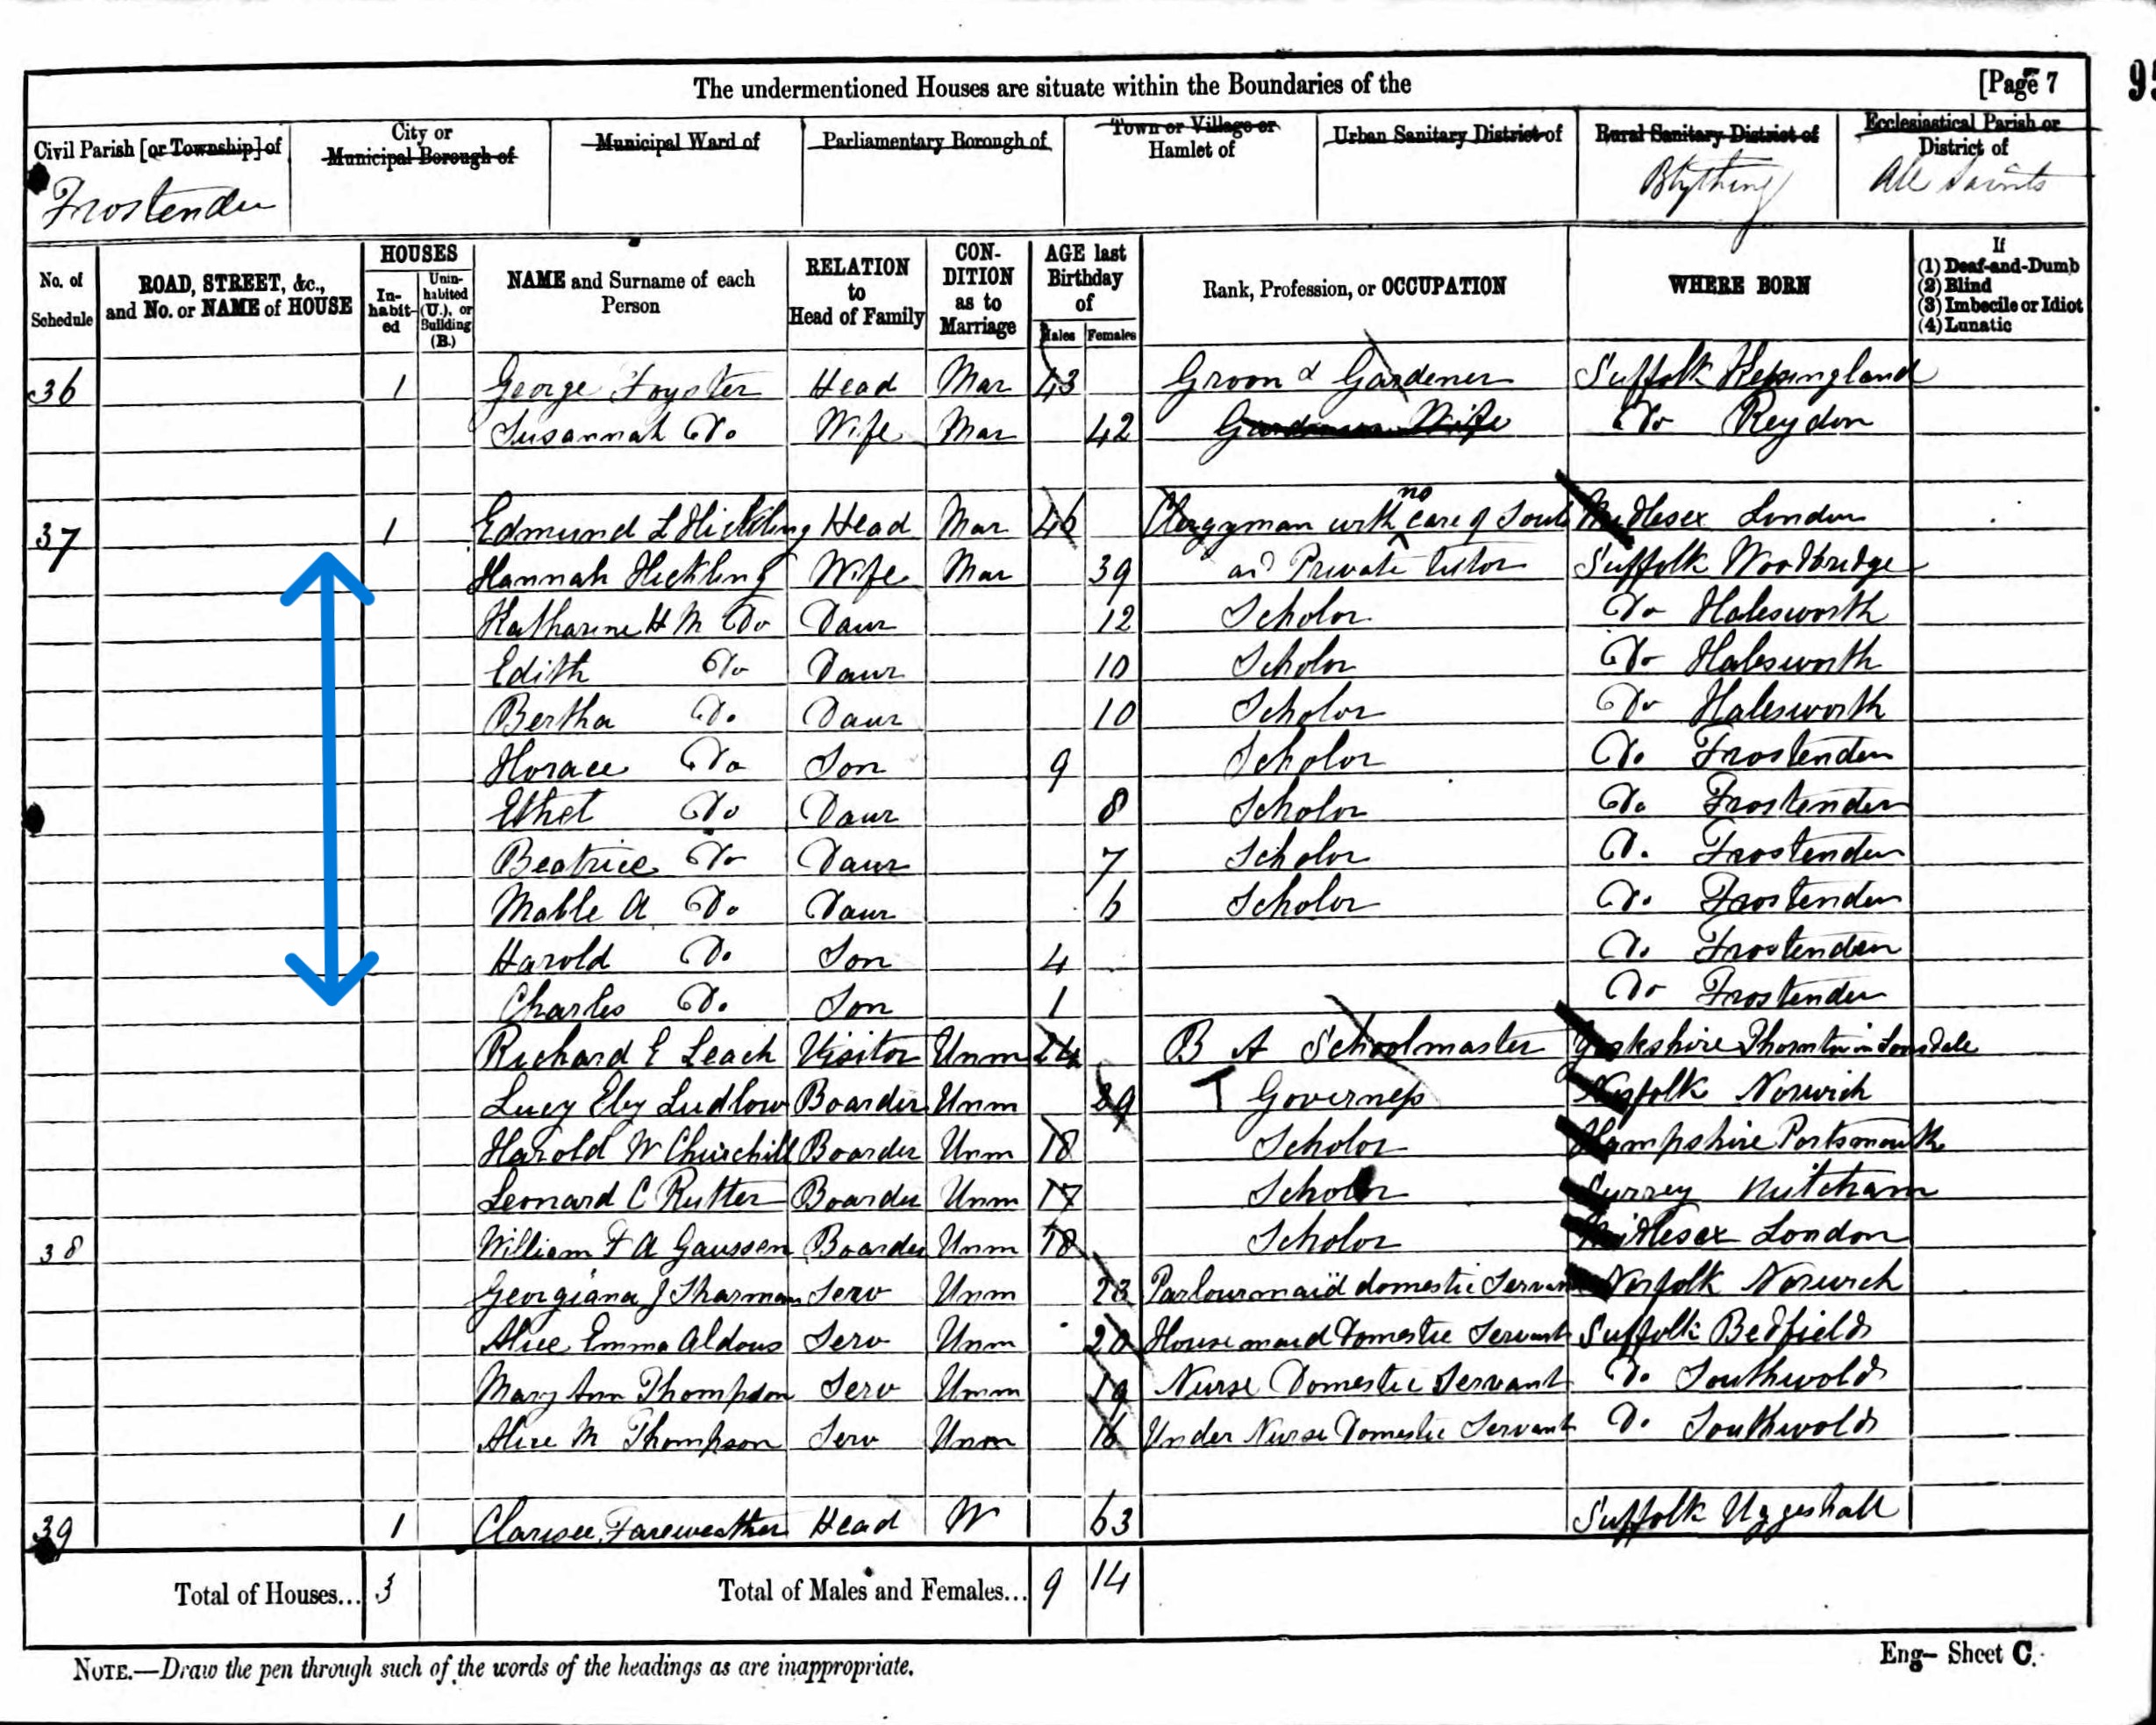 The undermentioned Houses are situate within the Boundaries of the [Page 7
Civil Parish [or Township] of
City or Municipal Borough of
Municipal Ward of
Parliamentary Borough of
Town or Village or Hamlet of
Urban Sanitary District of
Rural Sanitary District of
Ecclesiastical Parish or District of
Frostenden Blything All Saints
No. of Schedule
ROAD, STREET, &c., and No. or NAME of HOUSE
HOUSES
In-habit-ed
Unin-habited (U.), or Building (B.)
NAME and Surname of each Person
RELATION to Head of Family
CON-DITION as to Marriage
AGE last Birthday of
Males Females
Rank, Profession, or OCCUPATION
WHERE BORN
If
(1) Deaf-and-Dumb
(2) Blind
(3) Imbecile or Idiot
(4) Lunatic
36 1 George Foyster Head Mar 43 Groom & Gardener Suffolk Kessingland
Susannah Do Wife Mar 42 Gardeners Wife Do Reydon
37 1 Edmund L Hickling Head Mar 46 Clergyman with no care of Souls Middlesex London
Hannah Hickling Wife Mar 39 and Private tutor Suffolk Woodbridge
Katharine H M Do Daur 12 Scholor Do Halesworth
Edith Do Daur 10 Scholor Do Halesworth
Bertha Do Daur 10 Scholor Do Halesworth
Horace Do Son 9 Scholor Do Frostenden
Ethel Do Daur 8 Scholor Do Frostenden
Beatrice Do Daur 7 Scholor Do Frostenden
Mable A Do Daur 6 Scholor Do Frostenden
Harold Do Son 4 Do Frostenden
Charles Do Son 1 Do Frostenden
Richard E Leach Visitor Unm 24 B A Schoolmaster Yorkshire Thornton in Lonsdale
Lucy Eby Ludlow Boarder Unm 29 T Governess Norfolk Norwich
Harold W Churchill Boarder Unm 18 Scholor Hampshire Portsmouth
Leonard C Rutter Boarder Unm 17 Scholor Surrey Mitcham
38 William F A Gaussen Boarder Unm 18 Scholor Middlesex London
Georgiana J Sharman Serv Unm 23 Parlourmaid domestic Servant Norfolk Norwich
Alice Emma Aldous Serv Unm 20 House maid Domestic Servant Suffolk Bedfield
Mary Ann Thompson Serv Unm 19 Nurse Domestic Servant Do Southwold
Alice M Thompson Serv Unm 16 Under Nurse Domestic Servant Do Southwold
39 1 Fareweather Head W 63 Suffolk Uggeshall
Total of Houses... 3 Total of Males and Females... 9 14
NOTE.—Draw the pen through such of the words of the headings as are inappropriate.
Eng— Sheet C.